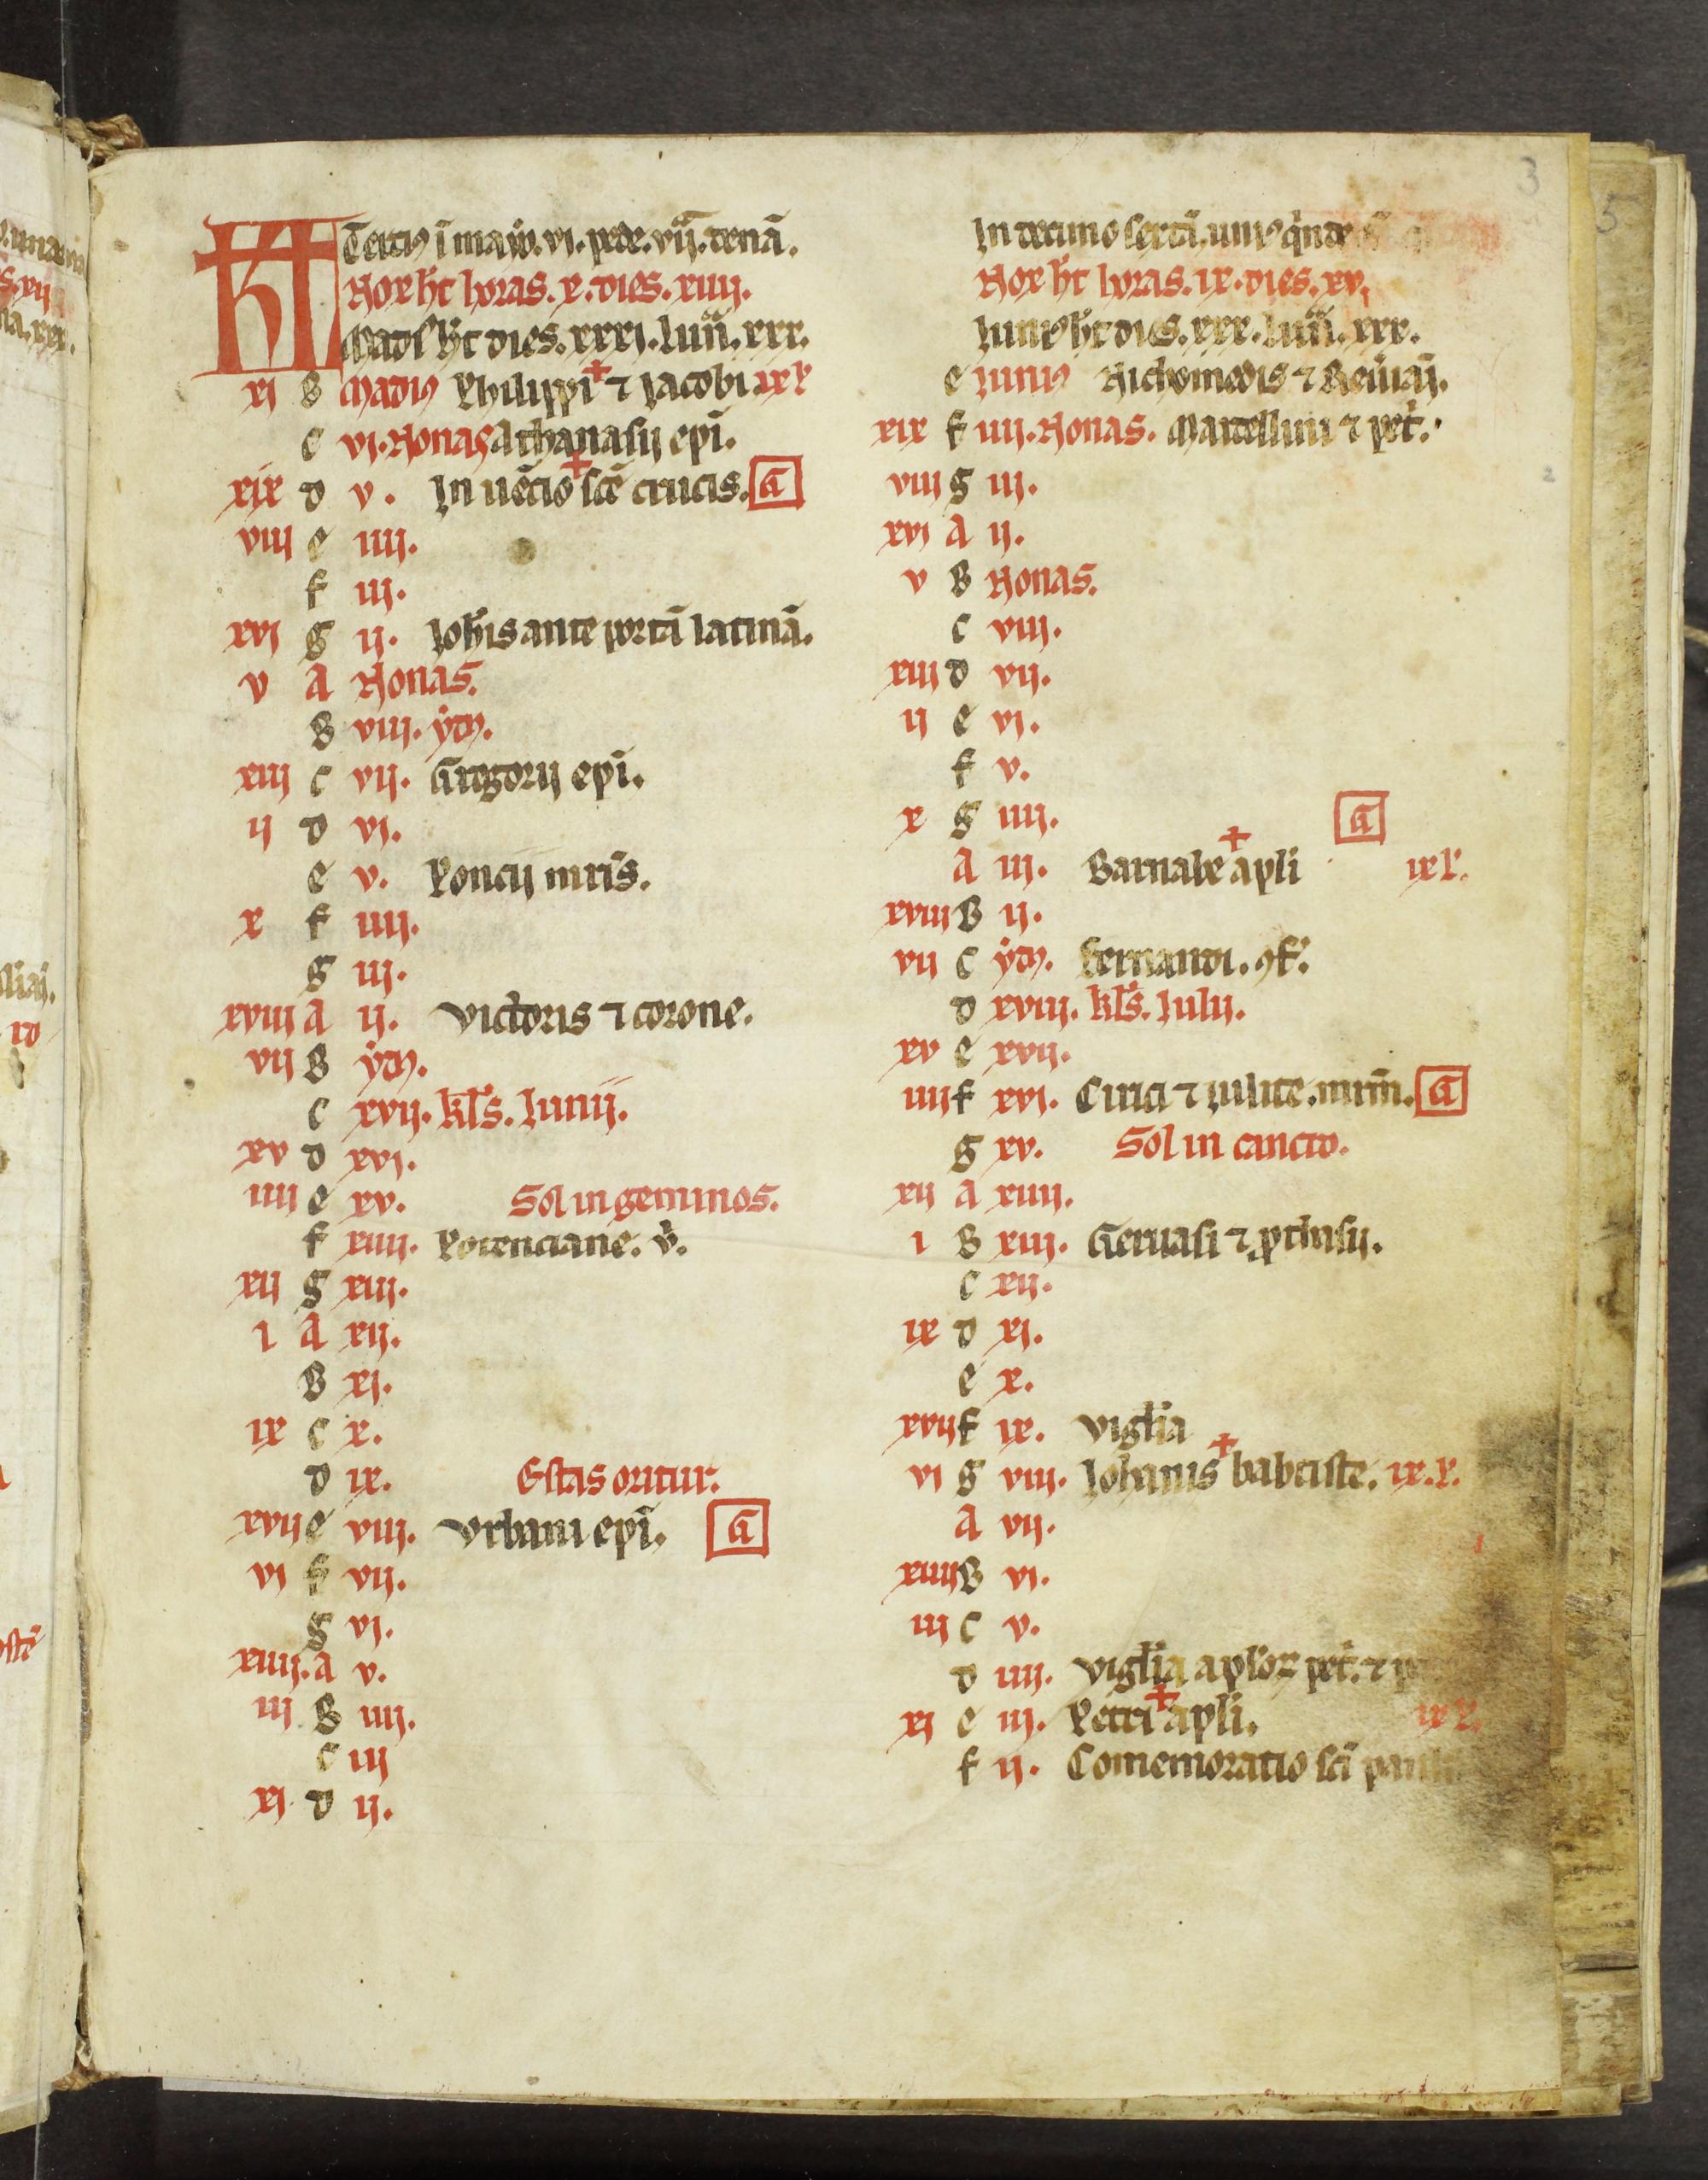 3
KL Terciꝰ ī maio. vi. pede. vij. tenā.
Nox hꝫt horas. x. dies. xiiij.
Madiꝰ hꝫt dies. xxxi. luñ. xxx.
xi B Madiꝰ Philippi + ⁊ Jacobi ix l
c vi. Nonas Athanasij epī.
xix d v. In uētio + scē crucis. G
viij e iiij.
f iij.
xvi g ij. Joħis ante portā latinā.
v A Nonas.
B viij. ydꝰ.
xiij c vij. Gregorij epī.
ij d vi.
e v. Poncij mr̄is.
x f iiij.
g iij.
xviij A ij. Victoris ⁊ corone.
vij B ydꝰ.
c xvij. kl̄s. Junij.
xv d xvi.
iiij e xv. Sol in geminos.
f xiiij. Potenciane. v̄.
xij g xiij.
i A xij.
B xi.
ix c x.
d ix. Estas oritur.
xvij e viij. Vrbani epī. G
vi f vij.
g vi.
xiiij. A v.
iij B iiij.
c iij
xi d ij.
In decimo sextā. uniꝰ q̇nde
Nox hꝫt horas. ix. dies. xv.
Juniꝰ hꝫt dies. xxx. luñ. xxx.
e Juniꝰ Nichomedis ⁊
xix f iiij. Nonas. Marcellini ⁊ pet̄.
viij g iij.
xvi A ij.
v B Nonas.
c viij.
xiij d vij.
ij e vi.
f v.
x g iiij. G
A iij. Barnabe + apl̄i ix l.
xviij B ij.
vij c ydꝰ. fernandi. ꝯf.
d xviij. kl̄s. Julij.
xv e xvij.
iiij f xvi. Cirici ⁊ iulite. mr̄m. G
g xv. Sol in cancro.
xij A xiiij.
i B xiij. Geruasi ⁊ ꝓthasij.
c xij.
ix d xi.
e x.
xvij f ix. Vigl̄ia
vi g viij. Johanis + babtiste. ix. l.
A vij.
xiiij B vi.
iij c v.
d iiij. Vigl̄ia apl̄oꝝ pet̄. ⁊
xi e iij. Petri + apl̄i. ix l.
f ij. Comemoratio sc̄i pauli